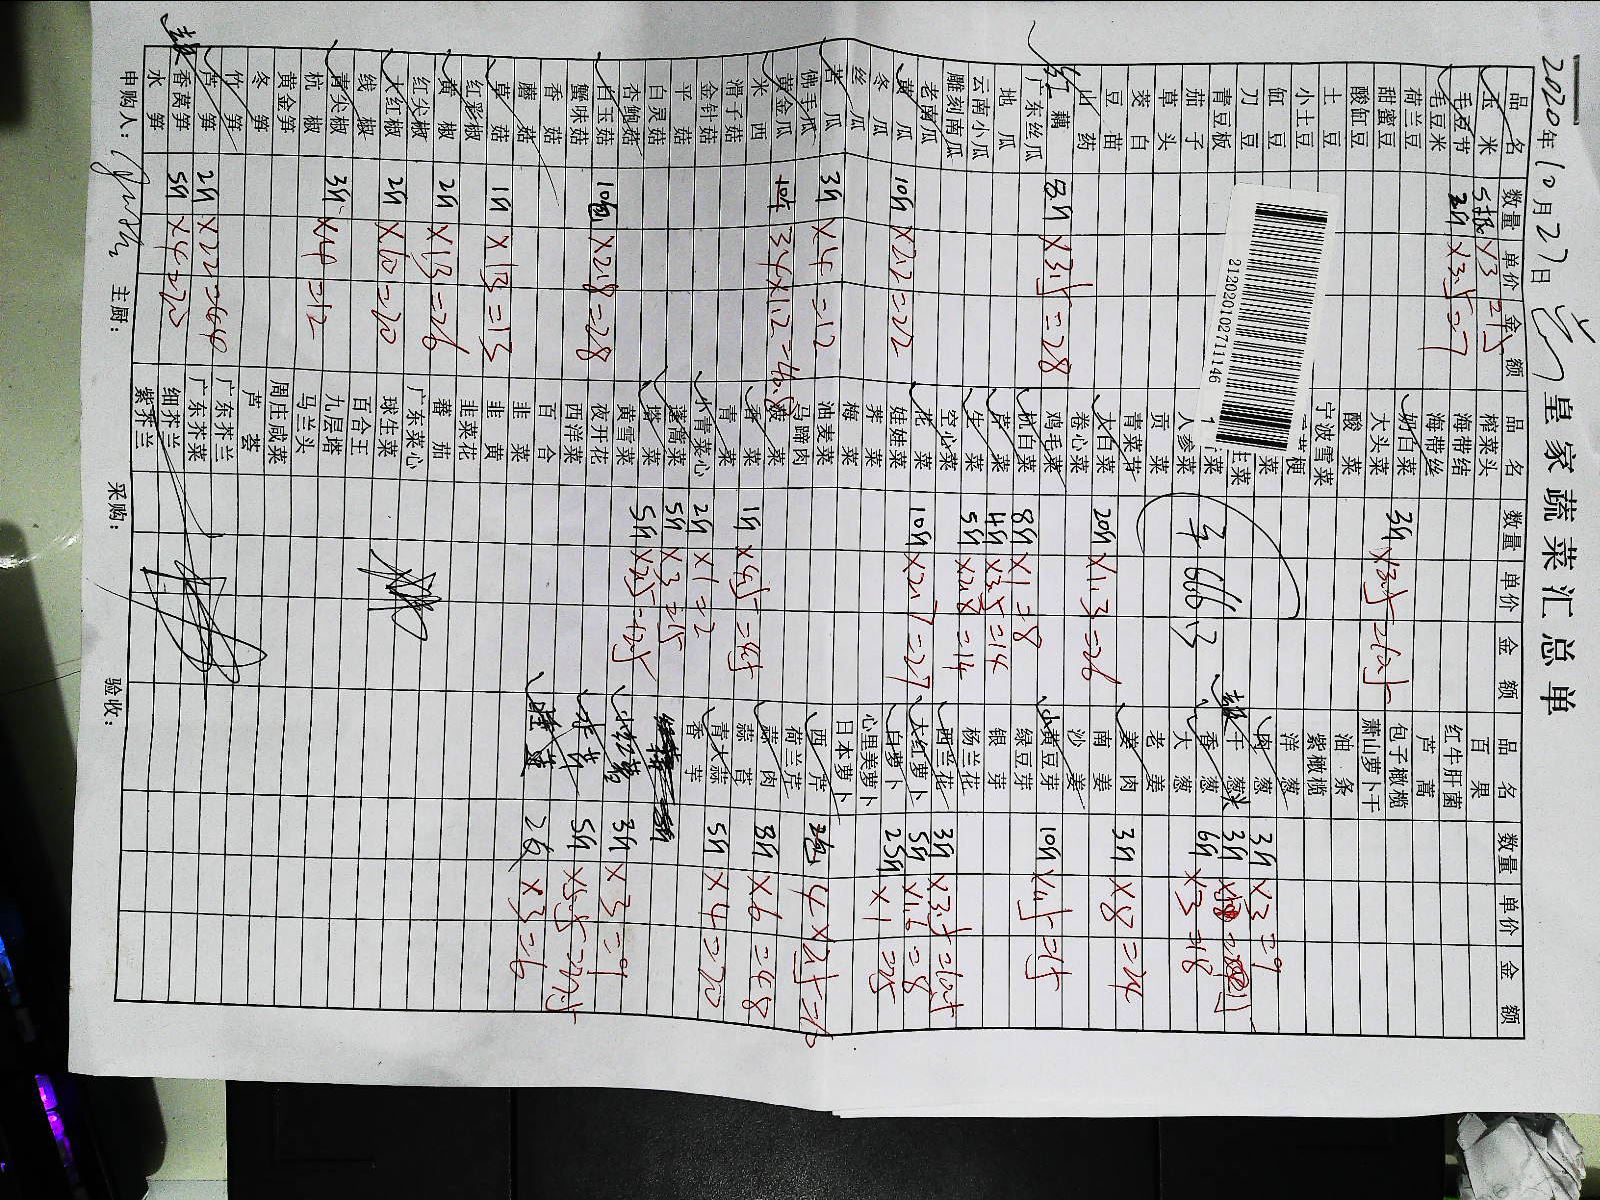 2020年10月27日 皇家蔬菜汇总单
品名 数量 单价 金额 品名 数量 单价 金额 品名 数量 单价 金额
玉米 5根 ×3 榨菜头 百果
毛豆节 2斤 ×3.5=7 海带结 红牛肝菌
毛豆米 海带丝 芦蒿
荷兰豆 奶白菜 3斤 ×3.5 包子橄榄
甜蜜豆 大头菜 萧山萝卜干
酸缸豆 酸菜 油条
土豆 宁波雪菜 紫橄榄
小土豆 梗 洋葱
缸豆 菜 肉葱 3斤 ×3=9
刀豆 生菜 干葱头 3斤
青豆板 菜 香葱 6斤 ×3=18
茄子 人参菜 大葱
草头 贡菜 老姜
茭白 青菜芽 姜肉 3斤 ×8=24
豆苗 大白菜 20斤 ×1.3=26 南姜
山药 卷心菜 沙姜
红藕 8斤 ×3.5=28 鸡毛菜 小黄豆芽 10斤 =15
广东丝瓜 杭白菜 8斤 ×1=8 绿豆芽
地瓜 芹菜 4斤 ×3.5=14 银芽
云南小瓜 生菜 5斤 ×2.8=14 杨兰花
雕刻南瓜 空心菜 西兰花 3斤 ×3.5
老南瓜 花菜 10斤 ×2.7=27 大红萝卜 5斤 ×1.6=8
黄瓜 10斤 ×2.2=22 娃娃菜 白萝卜 25斤 ×1=25
冬瓜 荠菜 心里美萝卜
丝瓜 梅菜 日本萝卜
苦瓜 3斤 ×4=12 油麦菜 西芹
佛手瓜 马蹄肉 荷兰芹
黄金瓜 34×1.2 菠菜 蒜肉 8斤 ×6=48
米西 香菜 1斤 蒜苔
滑子菇 青菜 青大蒜 5斤 ×4=20
金针菇 小青菜心 2斤 ×1=2 香芋
平菇 蓬蒿菜 5斤 ×3=15
白灵菇 塔菜 5斤 ×2.5
杏鲍菇 黄雪菜 3斤 ×3=9
白玉菇 10包 ×2.8=28 夜开花
蟹味菇 西洋菜 5斤
香菇 百合
蘑菇 韭菜 ×3=6
草菇 1斤 ×13=13 韭黄
红彩椒 韭菜花
黄椒 2斤 ×13=26 蕃茄
红尖椒 广东菜心
大红椒 2斤 ×10=20 球生菜
线椒 百合王
青尖椒 3斤 ×4=12 九层塔
杭椒 马兰头
黄金笋 周庄咸菜
冬笋 芦荟
竹笋 广东芥兰
芦笋 2斤 ×22 广东芥菜
香莴笋 5斤 ×4=20 细芥兰
水笋 紫芥兰
申购人： 主厨： 采购： 验收：
2120201027111146